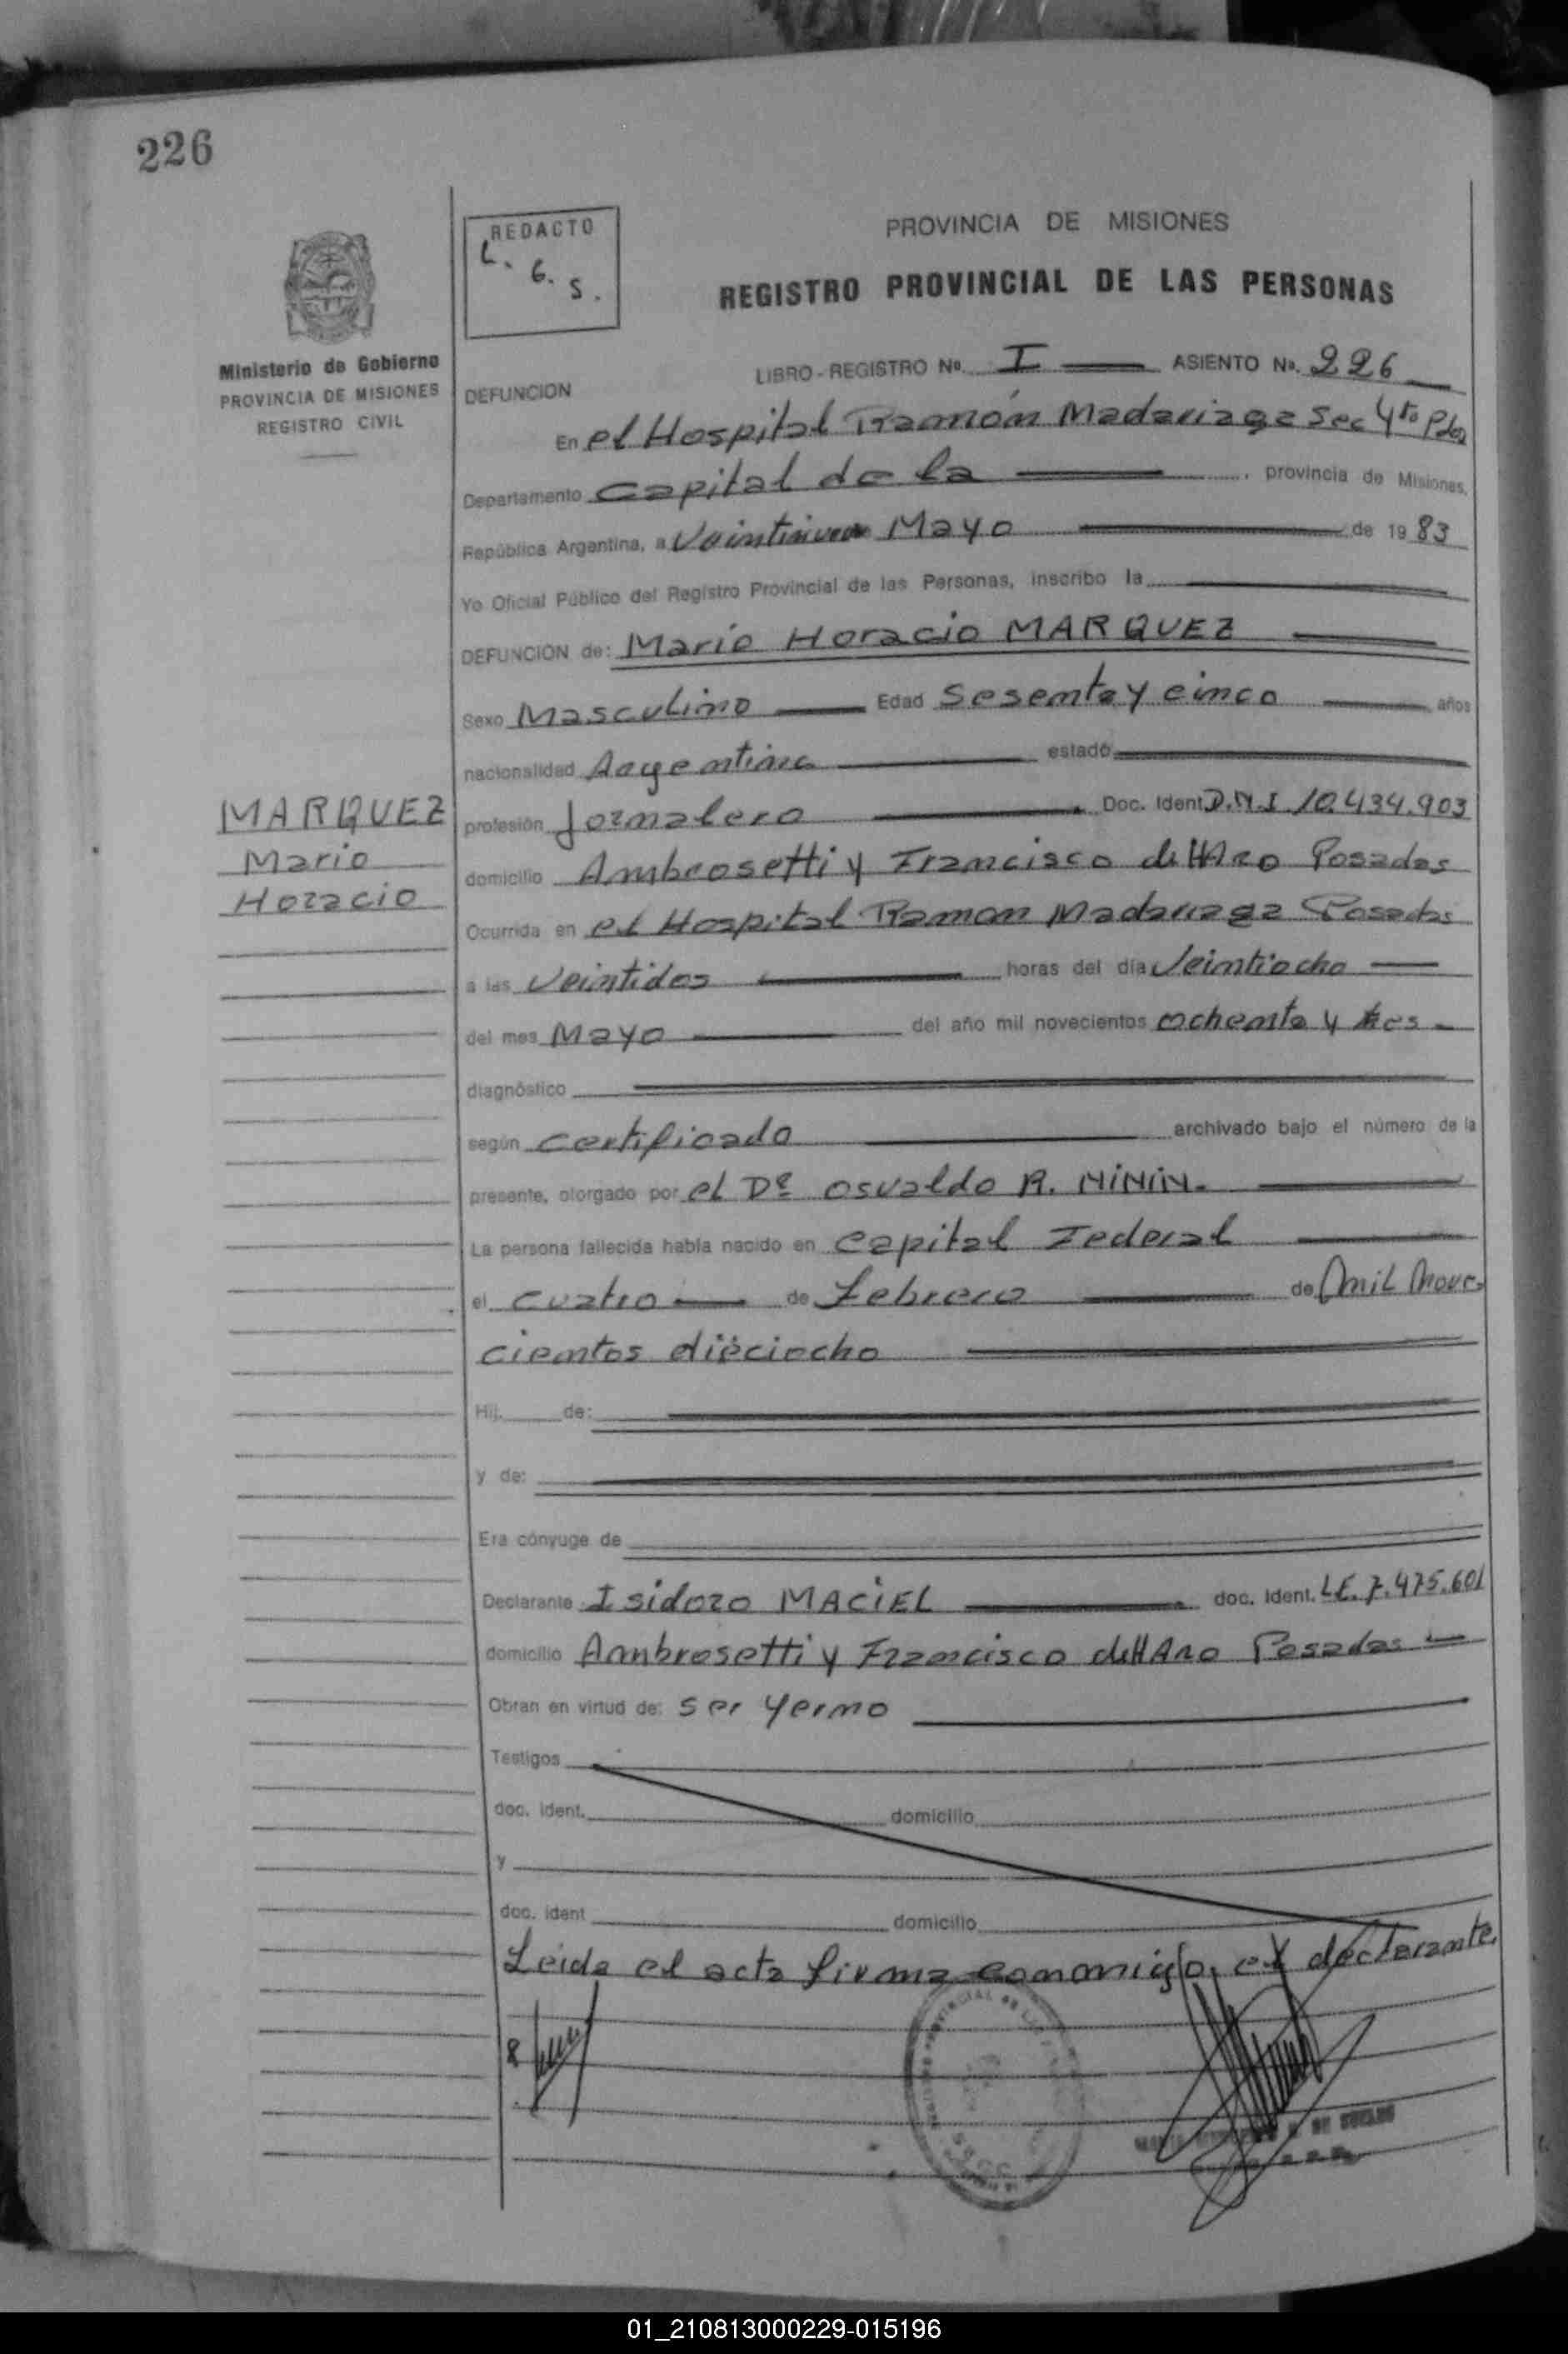 226
REDACTO
L. G. S.
Ministerio de Gobierno
PROVINCIA DE MISIONES
REGISTRO CIVIL
PROVINCIA DE MISIONES
REGISTRO PROVINCIAL DE LAS PERSONAS
LIBRO - REGISTRO Nº. I ASIENTO Nº. 226
DEFUNCION
En el Hospital Ramón Madariaga Sec 4ta Pdas
Departamento Capital de la provincia de Misiones,
República Argentina, a Mayo de 1983
Yo Oficial Público del Registro Provincial de las Personas, inscribo la
DEFUNCION de: Mario Horacio MARQUEZ
Sexo Masculino Edad Sesenta y cinco años
nacionalidad Argentina estado
MARQUEZ
Mario
Horacio
profesión Jornalero Doc. Ident D.N.I. 10.434.903
domicilio Ambrosetti y Francisco de HAro Posadas
Ocurrida en el Hospital Ramon Madariaga Posadas
a las Veintidos horas del día Veintiocho
del mes Mayo del año mil novecientos ochenta y tres
diagnóstico
según certificado archivado bajo el número de la
presente, otorgado por el Dr osvaldo R. NiNiN.
La persona fallecida había nacido en Capital Federal
el cuatro de Febrero de mil nove
cientos dieciocho
Hij. de:
y de:
Era cónyuge de
Declarante Isidoro MACiEL doc. Ident. LE. 7.475.601
domicilio Ambrosetti y Francisco de HAro Posadas
Obran en virtud de: ser yerno
Testigos
doc. Ident. domicilio
y
doc. Ident domicilio
Leida el acta firma conmigo, el declarante.
01_210813000229-015196